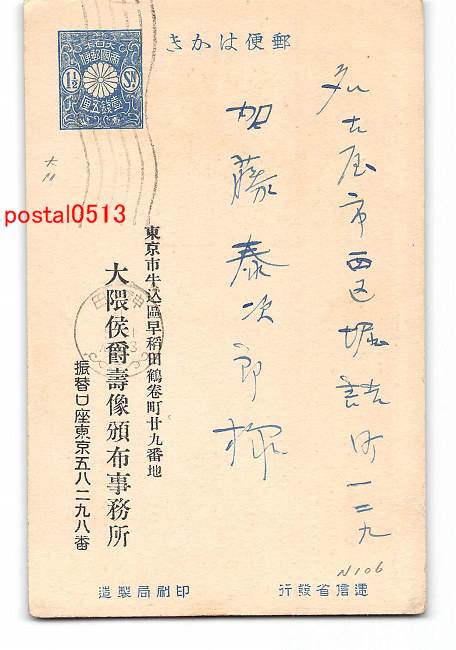 きかは便郵
大日本
帝國郵便
1½
Sn.
壹錢五厘
名古屋市西区堀詰町一二九
加藤泰次郎様
東京市牛込區早稻田鶴卷町廿九番地
大隈侯爵壽像頒布事務所
振替口座東京五八二九八番
大11
postal0513
N106
造製局刷印
行發省信遞